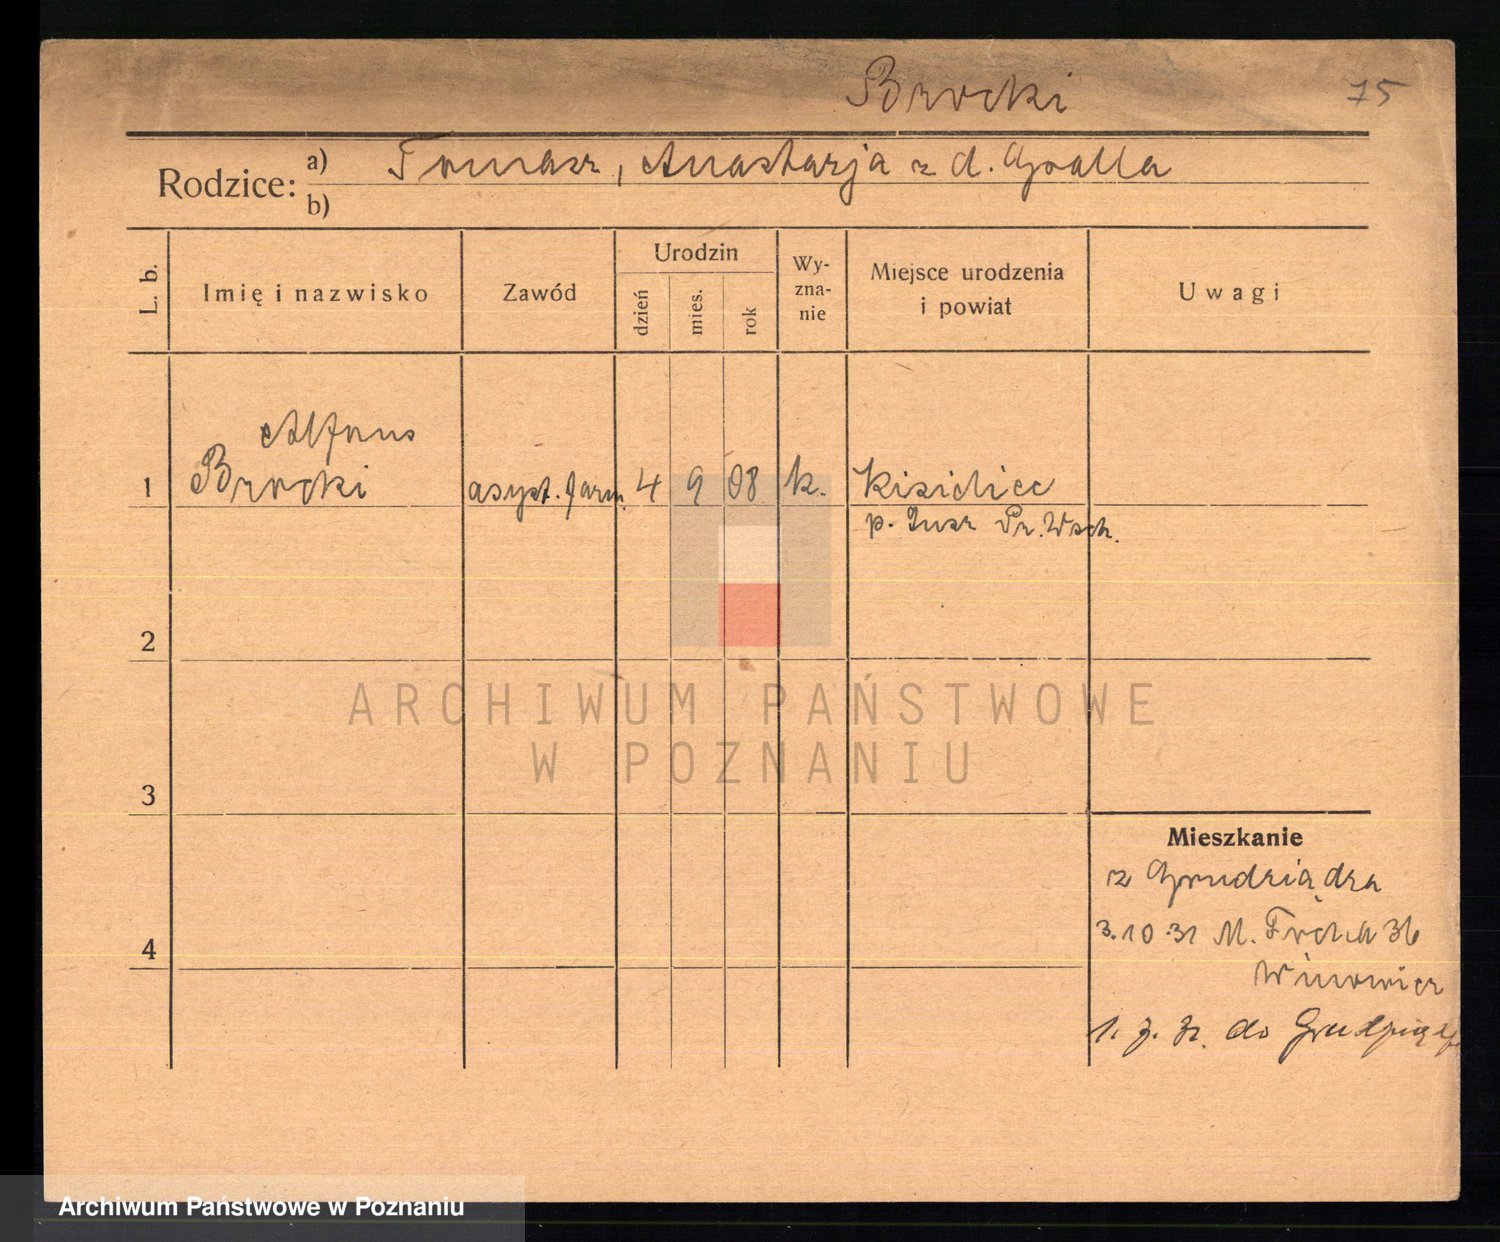 Brocki 75
Rodzice: a) Tomasz, Anastazja z d. Gralla
b)
L. b. Imię i nazwisko Zawód Urodzin dzień mies. rok Wy-zna-nie Miejsce urodzenia i powiat Uwagi
Alfons
1 Brocki asyst. farm. 4 9 08 k.
p. Pr. Wsch.
2
ARCHIWUM PAŃSTWOWE
W POZNANIU
3
Mieszkanie
z Grudziądza
4 3.10.31 M. Focha 36
do
Archiwum Państwowe w Poznaniu